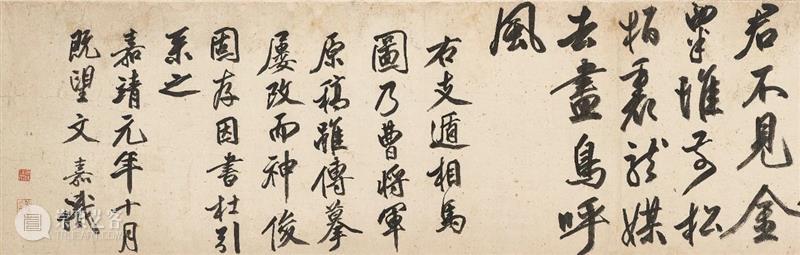 君不見金
粟堆前松
栢裏龍媒
去盡鳥呼
風
右支遁相馬
圖乃曹將軍
原稿雖傳摹
屢改而神俊
固存因書杜引
系之
嘉靖元年十月
既望文嘉識